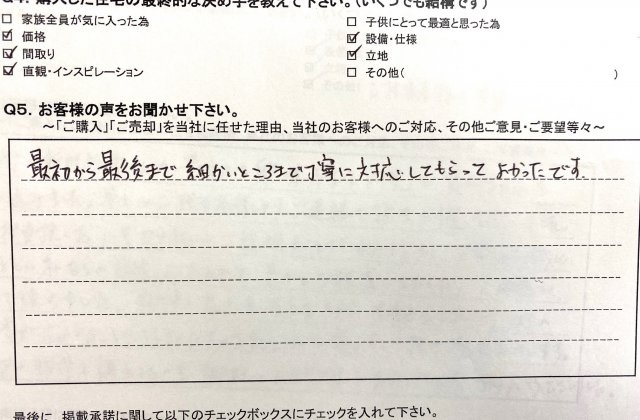 Q4. 購入した住宅の最終的な決め手を教えて下さい。(いくつでも結構です)
□ 家族全員が気に入った為 □ 子供にとって最適と思った為
☑ 価格 ☑ 設備・仕様
☑ 間取り ☑ 立地
☑ 直観・インスピレーション □ その他( )
Q5. お客様の声をお聞かせ下さい。
~「ご購入」「ご売却」を当社に任せた理由、当社のお客様へのご対応、その他ご意見・ご要望等々~
最初から最後まで細かいところまで丁寧に対応してもらってよかったです。
最後に、掲載承諾に関して以下のチェックボックスにチェックを入れて下さい。